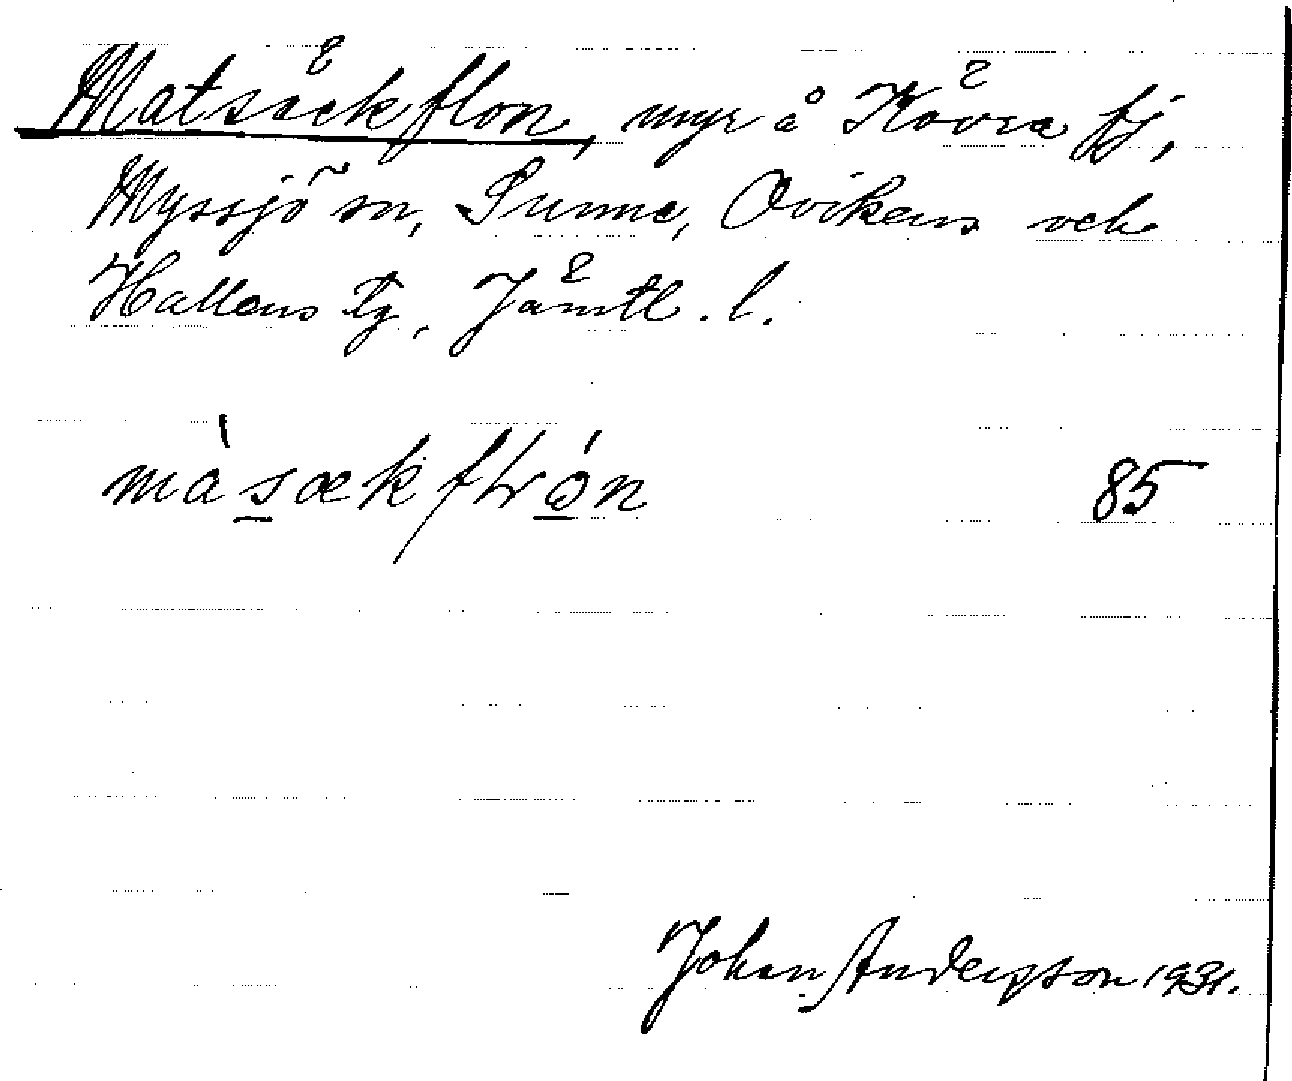 Matsäckflon, myr å Kövra fj,
Myssjö sn, Sunne, Ovikens och
Hallens tg, Jämtl. l.
85
Johan Anderzson 1931.